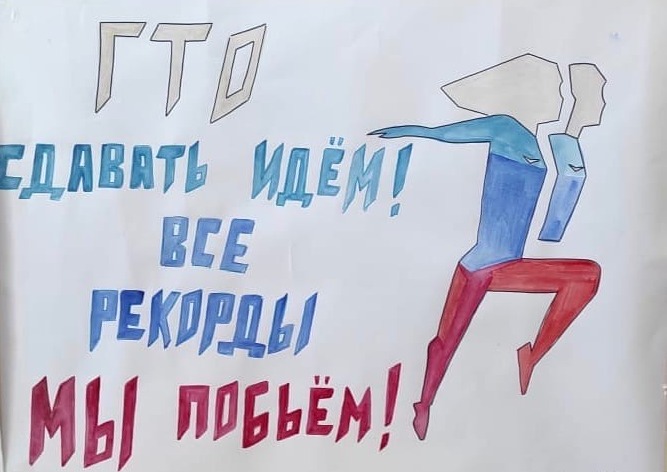 ГТО
СДАВАТЬ ИДЁМ!
ВСЕ
РЕКОРДЫ
МЫ ПОБЬЁМ!